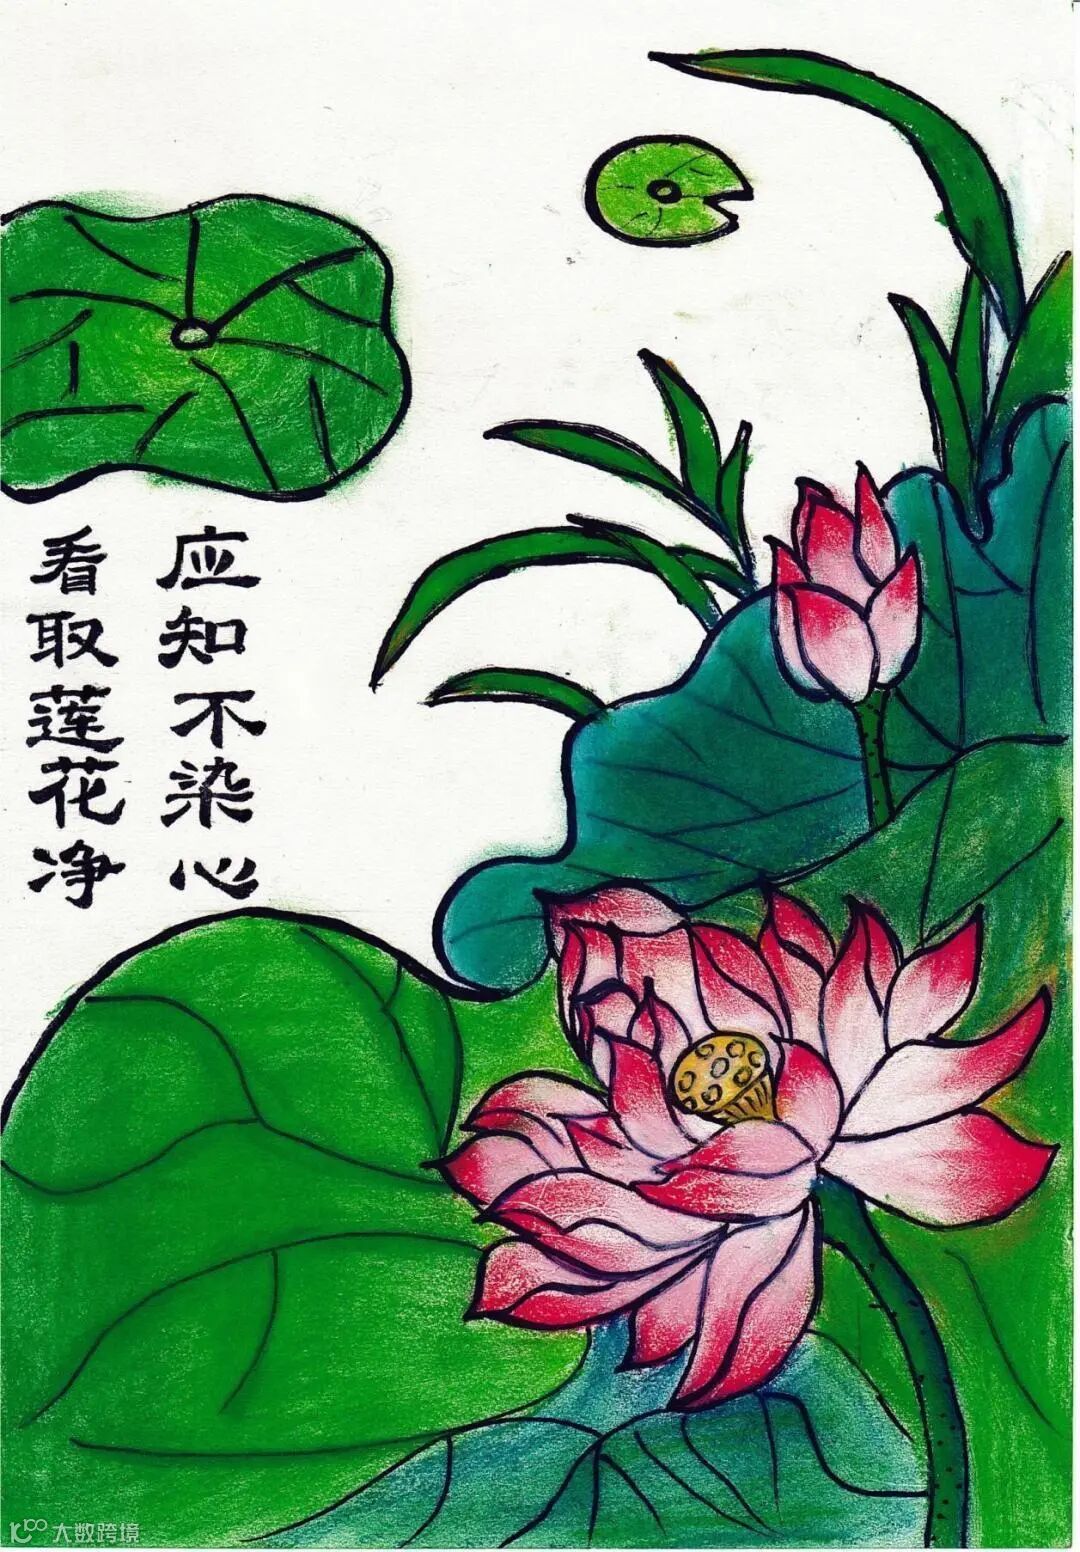 看取莲花净
应知不染心
大数跨境